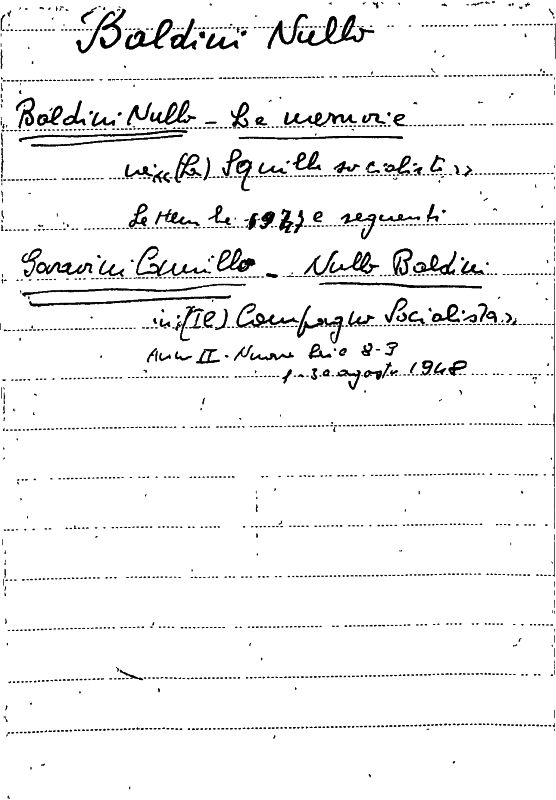 Baldini Nullo
Baldini Nullo - Le memorie
in «(La) Squilla socialista»
Settembre e seguenti
Garavini Camillo - Nullo Baldini
in: «(Il) Compagno Socialista»
Anno II - Nuova Serie 8-9
1-30 agosto 1948